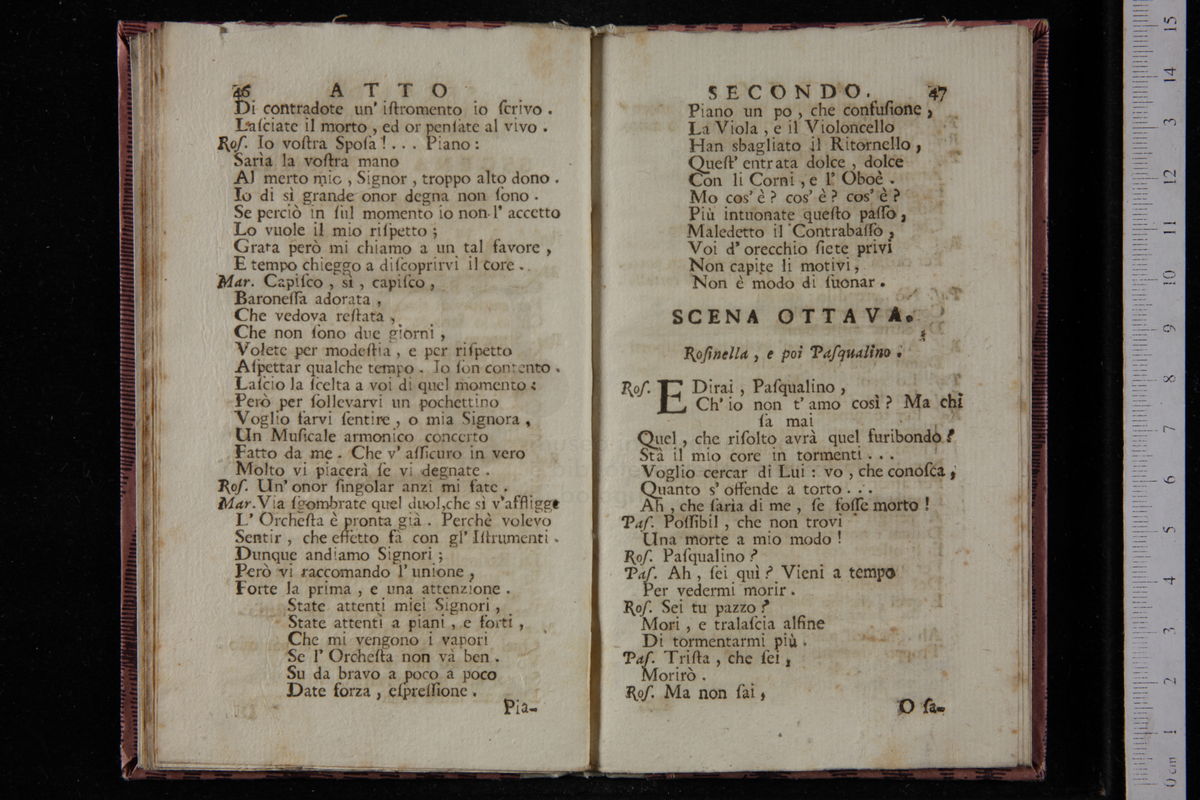 46 ATTO
Di contradote un' iſtromento io ſcrivo .
Laſciate il morto , ed or penſate al vivo .
Roſ. Io voſtra Spoſa ! . . . Piano :
Sarìa la voſtra mano
Al merto mio , Signor , troppo alto dono .
Io di sì grande onor degna non ſono .
Se perciò in ſul momento io non l' accetto
Lo vuole il mio riſpetto ;
Grata però mi chiamo a un tal favore ,
E tempo chieggo a diſcoprirvi il core .
Mar. Capiſco , sì , capiſco ,
Baroneſſa adorata ,
Che vedova reſtata ,
Che non ſono due giorni ,
Volete per modeſtia , e per riſpetto
Aſpettar qualche tempo . Io ſon contento .
Laſcio la ſcelta a voi di quel momento :
Però per ſollevarvi un pochettino
Voglio farvi ſentire , o mia Signora ,
Un Muſicale armonico concerto
Fatto da me . Che v' aſſicuro in vero
Molto vi piacerà ſe vi degnate .
Roſ. Un' onor ſingolar anzi mi fate .
Mar. Via ſgombrate quel duol,che sì v'affligge
L' Orcheſta è pronta già . Perchè volevo
Sentir , che effetto fa con gl' Iſtrumenti .
Dunque andiamo Signori ;
Però vi raccomando l' unione ,
Forte la prima , e una attenzione .
State attenti miei Signori ,
State attenti a piani , e forti ,
Che mi vengono i vapori
Se l' Orcheſta non và ben .
Su da bravo a poco a poco
Date forza , eſpreſſione .
Pia-
SECONDO. 47
Piano un po , che confuſione ,
La Viola , e il Violoncello
Han sbagliato il Ritornello ,
Queſt' entrata dolce , dolce
Con li Corni , e l' Oboè .
Mo cos' è ? cos' è ? cos' è ?
Più intuonate queſto paſſo ,
Maledetto il Contrabaſſo ,
Voi d' orecchio ſiete privi
Non capite li motivi ,
Non è modo di ſuonar .
SCENA OTTAVA.
Roſinella , e poi Paſqualino .
Roſ. E Dirai , Paſqualino ,
Ch' io non t' amo così ? Ma chi
fa mai
Quel , che riſolto avrà quel furibondo ?
Stà il mio core in tormenti . . .
Voglio cercar di Lui : vo , che conoſca ,
Quanto s' offende a torto . . .
Ah , che ſaria di me , ſe foſſe morto !
Paſ. Poſſibil , che non trovi
Una morte a mio modo !
Roſ. Paſqualino ?
Paſ. Ah , ſei quì ? Vieni a tempo
Per vedermi morir .
Roſ. Sei tu pazzo ?
Mori , e tralaſcia alfine
Di tormentarmi più .
Paſ. Triſta , che ſei ,
Morirò .
Roſ. Ma non ſai ,
O ſa-
0 cm 1 2 3 4 5 6 7 8 9 10 11 12 3 14 15